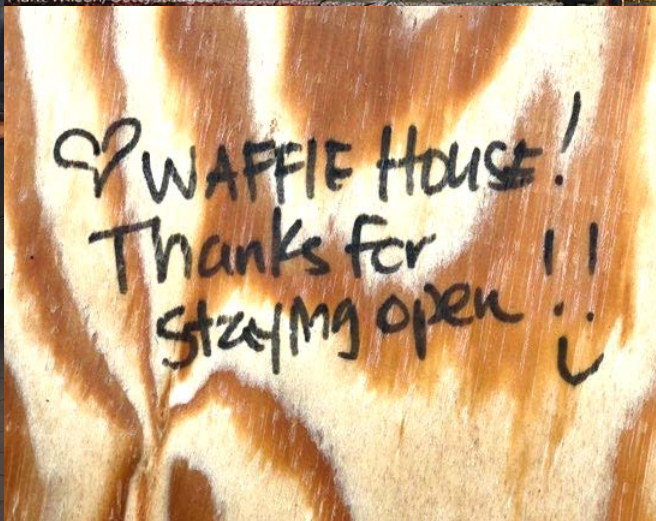 ♡ WAFFlE HOUSE!
Thanks for
staying open !!